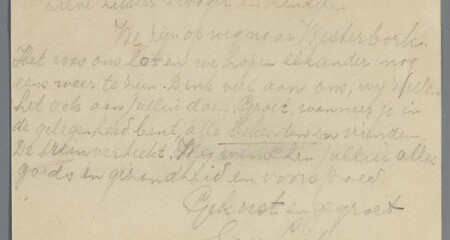 Lieve zuster zwager en kinderen
We zijn op weg naar Westerbork.
Het was ons lot en we hopen elkander nog
eens weer te zien. Denk veel aan ons, wij zullen
het ook aan jullie doen. Groet, wanneer je in
de gelegenheid bent, alle bekenden en vrienden
De trein vertrekt. Wij wenschen jullie alles
goeds en gezondheid en voorspoed
Gekust en gegroet